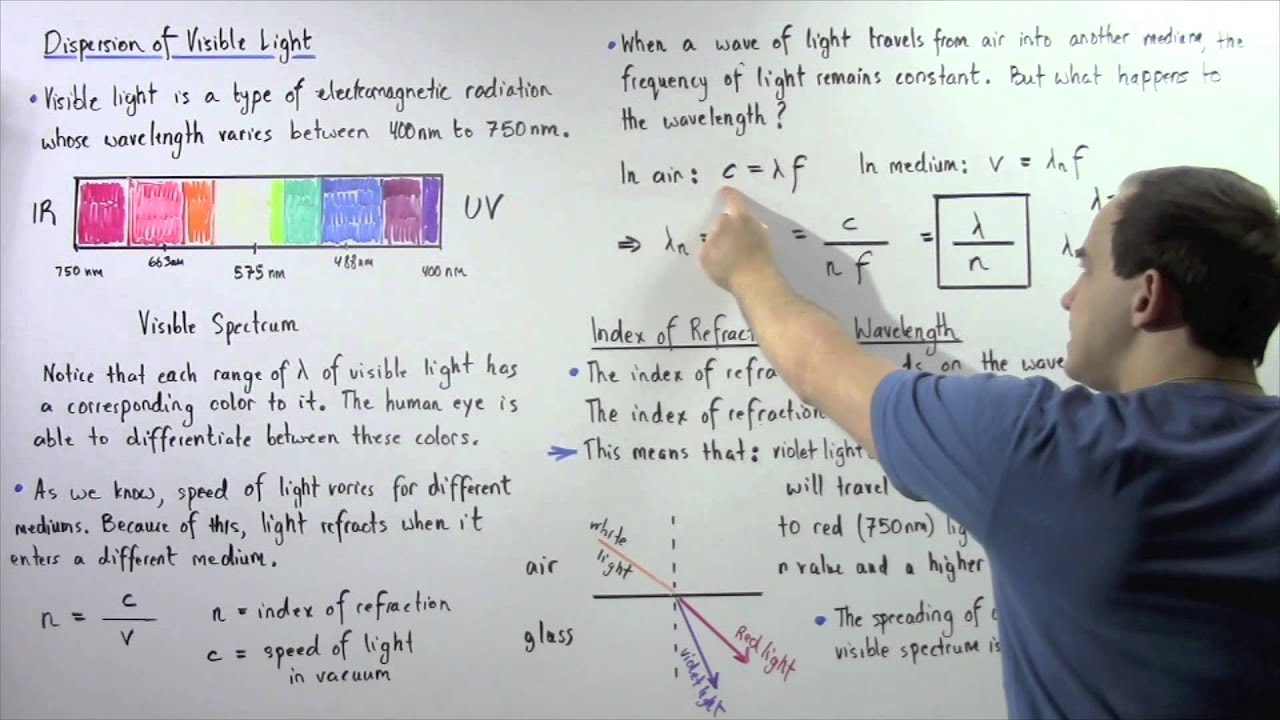 Dispersion of Visible Light
• Visible light is a type of electromagnetic radiation
whose wavelength varies between 400nm to 750nm.
IR
UV
750 nm
663nm
575 nm
488nm
400 nm
Visible Spectrum
Notice that each range of λ of visible light has
a corresponding color to it. The human eye is
able to differentiate between these colors.
• As we know, speed of light varies for different
mediums. Because of this, light refracts when it
enters a different medium.
n = c / v
n = index of refraction
c = speed of light
in vacuum
• When a wave of light travels from air into another medium, the
frequency of light remains constant. But what happens to
the wavelength?
In air: c = λ f
In medium: v = λn f
λ =
⇒ λn =
= c / n f
= λ / n
Index of
Wavelength
• The index of
on the
The index of refraction
This means that: violet light
will travel
to red (750nm)
n value and a higher
• The spreading of
visible spectrum is
air
glass
white
light
Red light
violet light